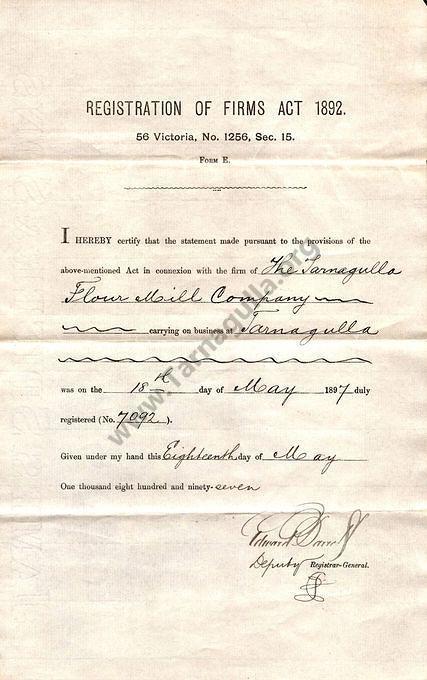 REGISTRATION OF FIRMS ACT 1892.
56 Victoria, No. 1256, Sec. 15.
FORM E.
I HEREBY certify that the statement made pursuant to the provisions of the
above-mentioned Act in connexion with the firm of The Tarnagulla
Flour Mill Company
carrying on business at Tarnagulla
was on the 18th day of May 1897 duly
registered (No. 7092).
Given under my hand this Eighteenth day of May
One thousand eight hundred and ninety-seven
Edward
Deputy Registrar-General.
www.Tarnagulla.org